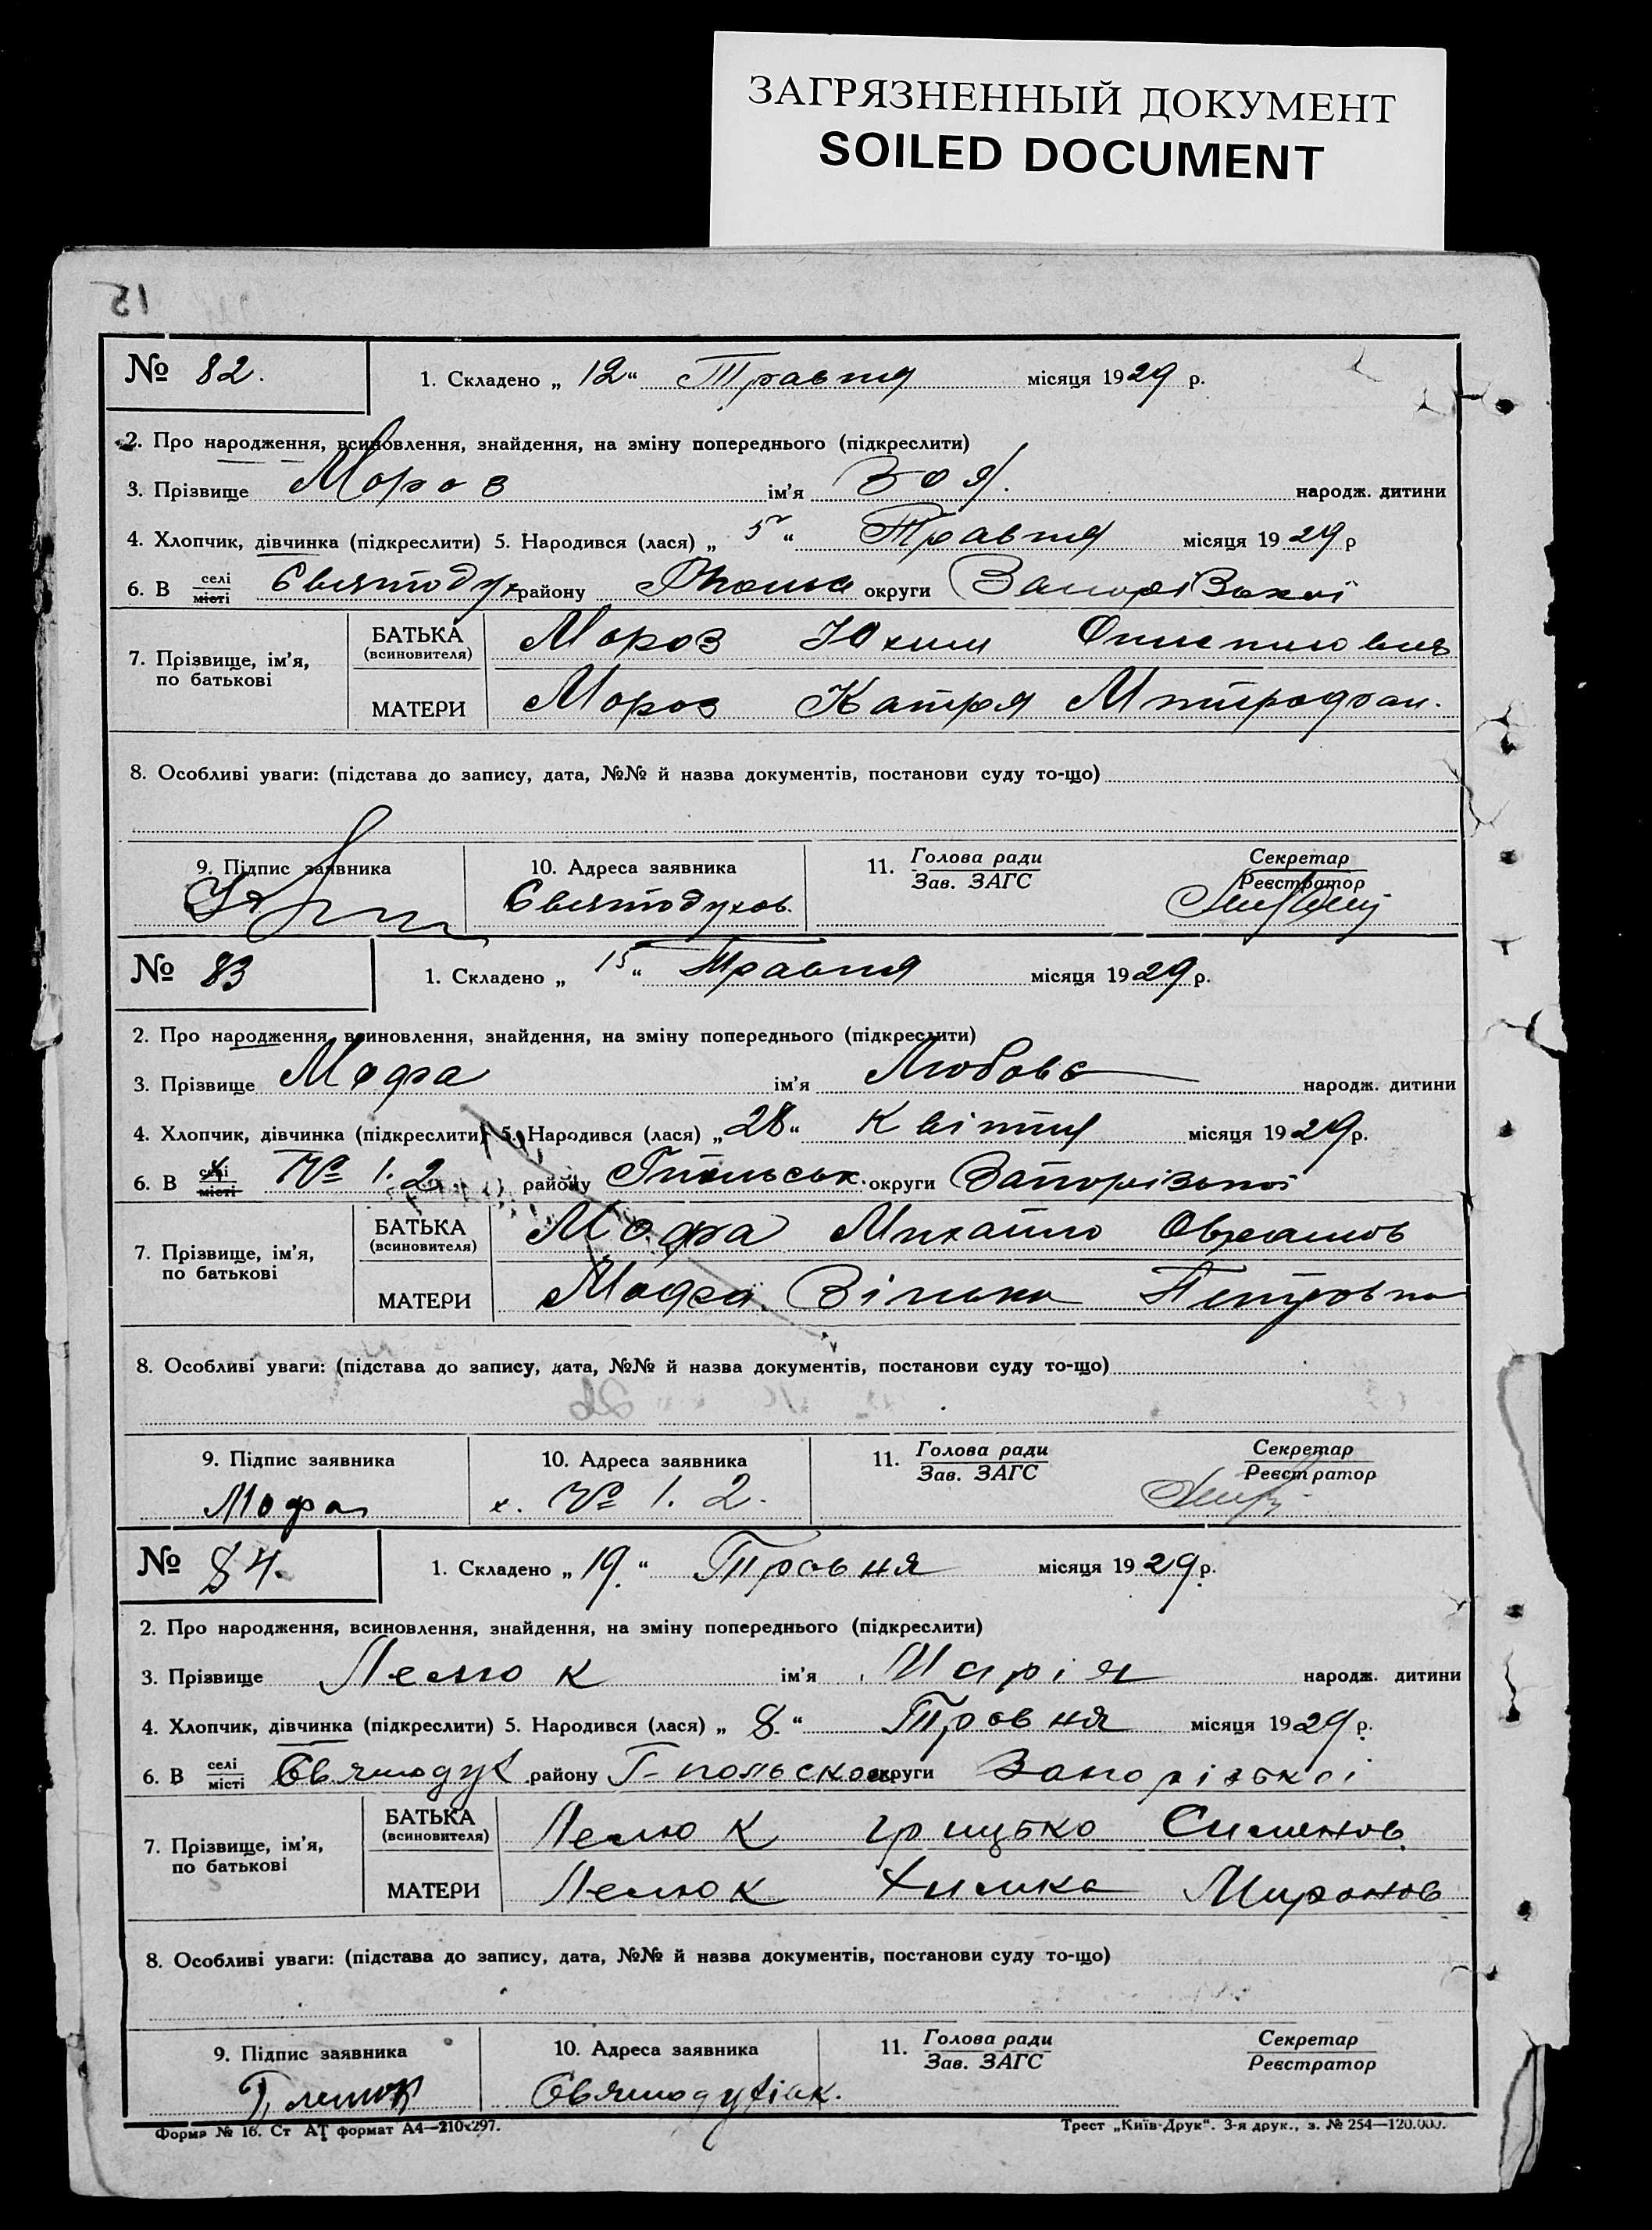 ЗАГРЯЗНЕННЫЙ ДОКУМЕНТ
SOILED DOCUMENT
15
№ 82. 1. Складено „ 12 “ Травня місяця 1929 р.
2. Про народження, всиновлення, знайдення, на зміну попереднього (підкреслити)
3. Прізвище Мороз ім'я Зоя. народж. дитини
4. Хлопчик, дівчинка (підкреслити) 5. Народився (лася) „ 5 “ Травня місяця 1929 р
6. В селі місті Святодух району округи Запорізької
7. Прізвище, ім'я, по батькові
БАТЬКА (всиновителя) Мороз Юхим
МАТЕРИ Мороз Катря Митрофан.
8. Особливі уваги: (підстава до запису, дата, №№ й назва документів, постанови суду то-що)
9. Підпис заявника 10. Адреса заявника 11. Голова ради Зав. ЗАГС Секретар Реєстратор
Святодухов.
№ 83 1. Складено „ 15 “ Травня місяця 1929 р.
2. Про народження, всиновлення, знайдення, на зміну попереднього (підкреслити)
3. Прізвище Мофа ім'я Любовь народж. дитини
4. Хлопчик, дівчинка (підкреслити) 5. Народився (лася) „ 28 “ Квітня місяця 1929 р.
6. В селі місті № 1.2. району Гпольськ. округи Запорізької
7. Прізвище, ім'я, по батькові
БАТЬКА (всиновителя) Мофа Михайло Овражов
МАТЕРИ Мофа Зінька Петровна
8. Особливі уваги: (підстава до запису, дата, №№ й назва документів, постанови суду то-що)
9. Підпис заявника 10. Адреса заявника 11. Голова ради Зав. ЗАГС Секретар Реєстратор
Мофа х. № 1. 2.
№ 84. 1. Складено „ 19. “ Тровня місяця 1929 р.
2. Про народження, всиновлення, знайдення, на зміну попереднього (підкреслити)
3. Прізвище Лемюк ім'я Марія народж. дитини
4. Хлопчик, дівчинка (підкреслити) 5. Народився (лася) „ 8. “ Тровня місяця 1929 р.
6. В селі місті Святодух району Г-польском округи Запорізькоі
7. Прізвище, ім'я, по батькові
БАТЬКА (всиновителя) Лемюк грицько Сименов.
МАТЕРИ Лемюк Химка Миронов
8. Особливі уваги: (підстава до запису, дата, №№ й назва документів, постанови суду то-що)
9. Підпис заявника 10. Адреса заявника 11. Голова ради Зав. ЗАГС Секретар Реєстратор
Святодухівк.
Форма № 16. Ст АТ формат А4—210х297. Трест „Київ-Друк“. 3-я друк., з. № 254—120.000.